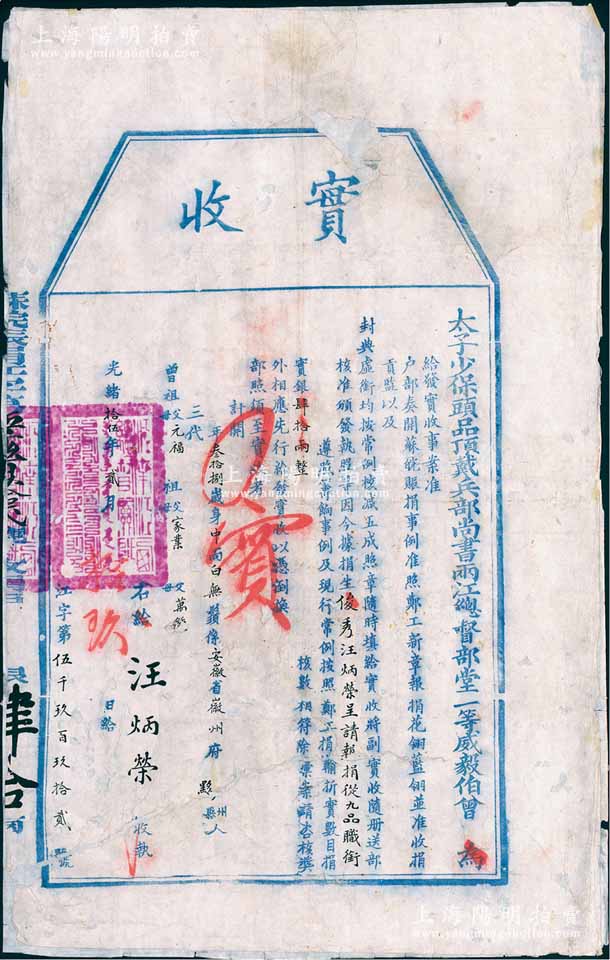 上海陽明拍賣
www.yangmingauction.com
實收
太子少保頭品頂戴兵部尚書兩江總督部堂一等威毅伯曾 為
給發實收事案准
户部奏開蘇皖賑捐事例准照鄭工新章報捐花翎藍翎並准收捐
貢監以及
封典虛銜均按常例核減五成照章隨時填給實收將副實收隨册送部
核准頒發執照 因今據捐生俊秀汪炳榮呈請報捐從九品職銜
遵 事例及現行常例按照鄭工捐輸折實數目捐
實銀肆拾兩整 核數相符除彙案請咨核獎
外相應先行 實收以憑倒換
部照須至實
計開
年叁拾捌歲身中面白無鬚係安徽省徽州府黟縣人
三代
曾祖父元福 祖父家業 父萬
右給 汪炳榮 收執
光緒拾伍年貳月拾玖日給
江字第伍千玖百玖拾貳號
實
肆拾兩
上海陽明拍賣
www.yangmingauction.com